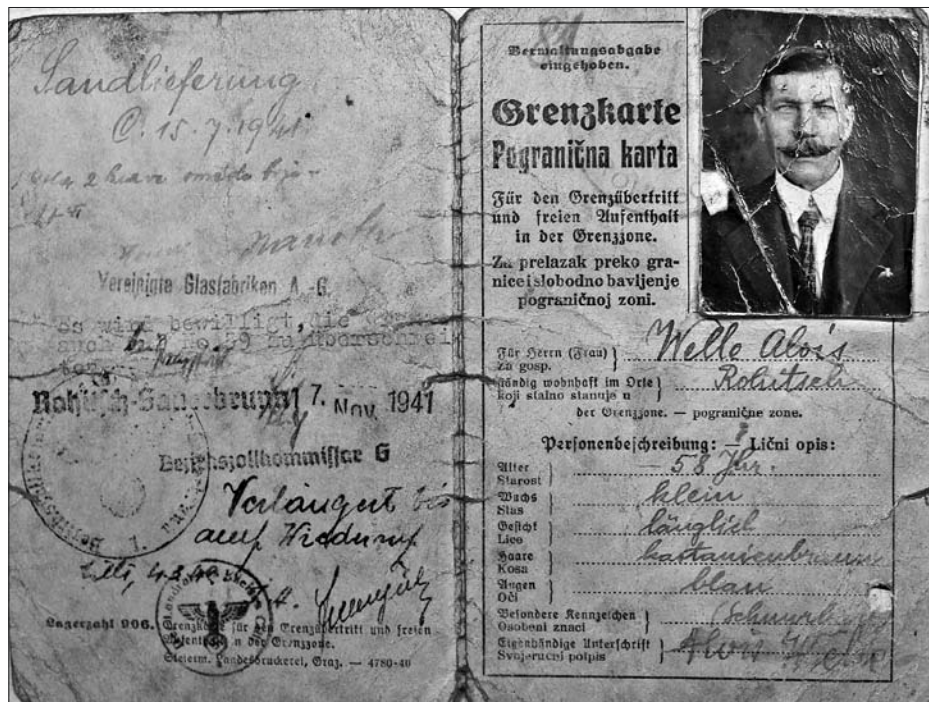 Sandlieferung
15.7.1941.
Vereinigte Glasfabriken A.-G.
Es wird bewilligt, die
auch No.39 zu überschrei
ten.
Rohitsch-Sauerbrunn 17. Nov. 1941
Bezirkszollkommissar G
Verlängert bis
auf Widerruf
Lagerzahl 906. Grenzkarte für den Grenzübertritt und freien
Aufenthalt in der Grenzzone.
Steierm. Landesdruckerei, Graz. — 4780-40
Verwaltungsabgabe
eingehoben.
Grenzkarte
Pogranična karta
Für den Grenzübertritt
und freien Aufenthalt
in der Grenzzone.
Za prelazak preko gra-
nice i slobodno bavljenje
pograničnoj zoni.
Für Herrn (Frau)
Za gosp.
Welle Alois
ständig wohnhaft im Orte
koji stalno stanuje u
Rohitsch
der Grenzzone. — pogranične zone.
Personenbeschreibung: — Lični opis:
Alter
Starost
58 Jhr.
Wuchs
Stas
klein
Gesicht
Lice
länglich
Haare
Kosa
kastanienbraun
Augen
Oči
blau
Besondere Kennzeichen
Osobeni znaci
Eigenhändige Unterschrift
Svojeručni potpis
Alois Welle